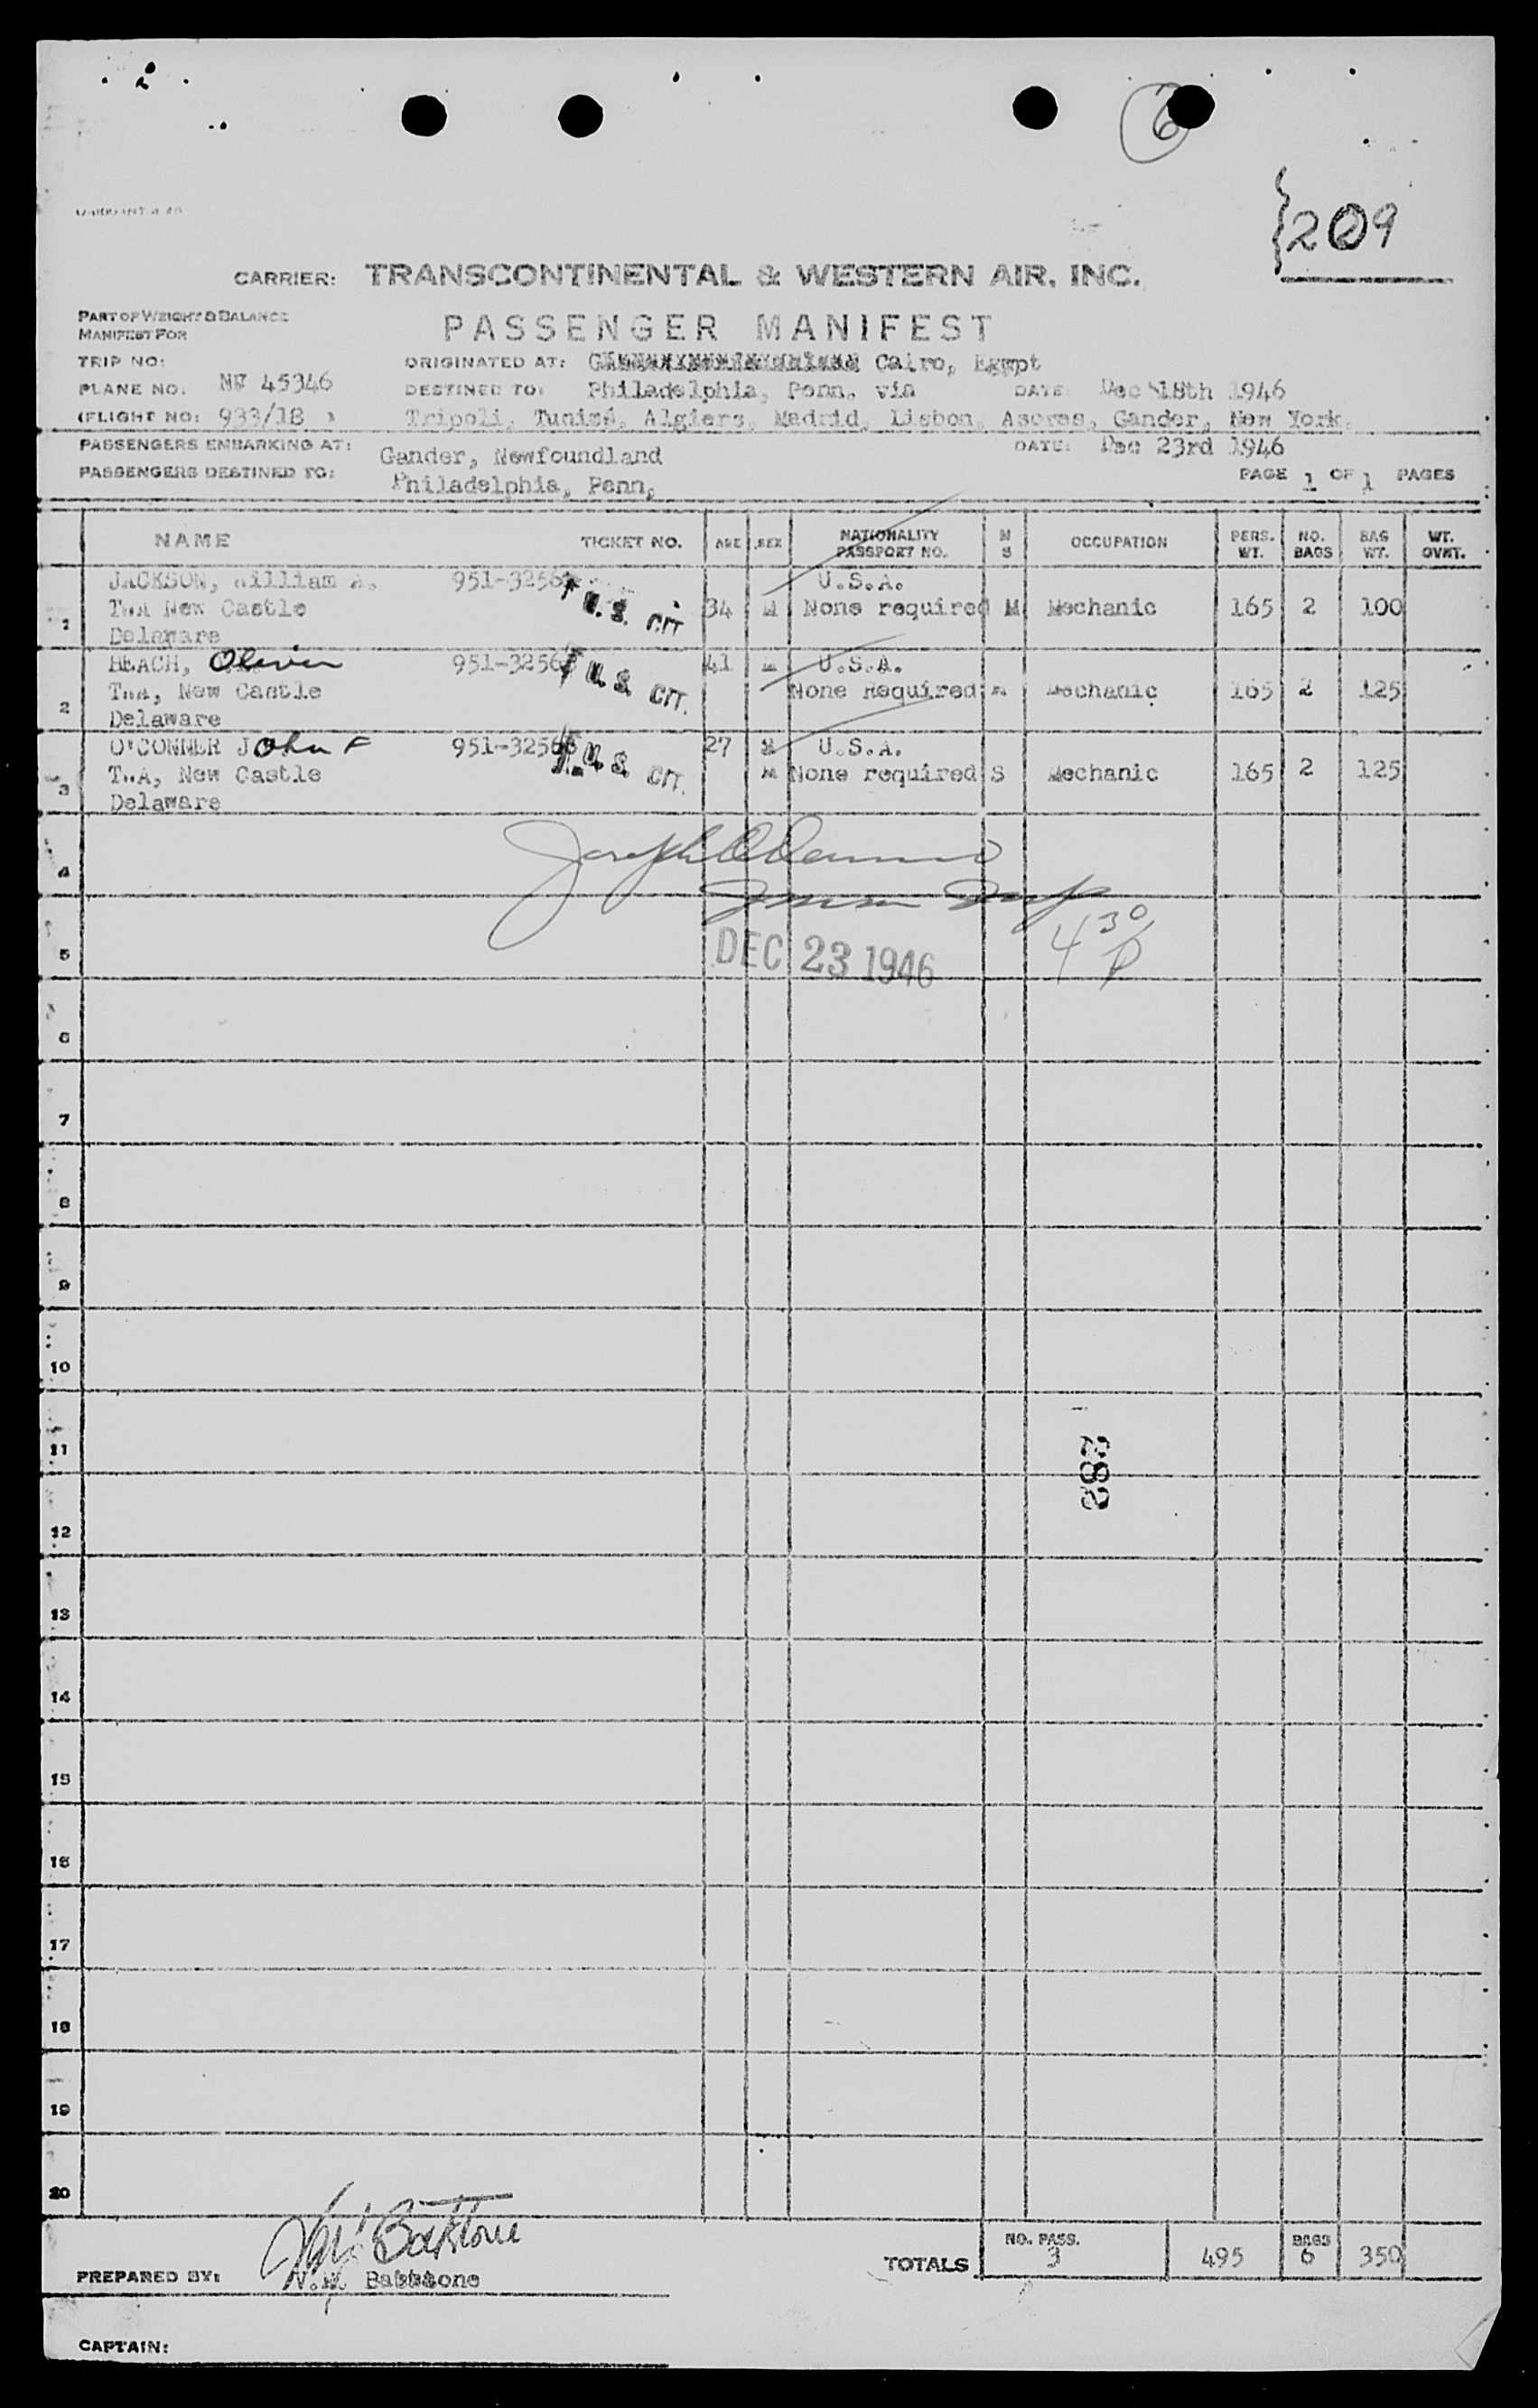 6
209
CARRIER: TRANSCONTINENTAL & WESTERN AIR, INC.
PART OF WEIGHT & BALANCE
MANIFEST FOR
PASSENGER MANIFEST
TRIP NO: ORIGINATED AT: Cairo, Egypt
PLANE NO. 45346 DESTINED TO: Philadelphia, Penn. via DATE: Dec 18th 1946
(FLIGHT NO: 933/18 ) Tripoli, Algiers, Madrid, Lisbon, Asores, Gander, New York.
PASSENGERS EMBARKING AT: Gander, Newfoundland DATE: Dec 23rd 1946
PASSENGERS DESTINED TO: Philadelphia, Penn, PAGE 1 OF 1 PAGES
NAME TICKET NO. AGE SEX NATIONALITY PASSPORT NO. M S OCCUPATION PERS. WT. NO. BAGS BAG WT. WT. OVWT.
JACKSON, William A. 951-3256 U.S.A.
1 TWA New Castle U.S. CIT 34 M None required M Mechanic 165 2 100
Delaware
BEACH, Oliver 951-3256 U.S. CIT. 41 U.S.A.
2 TWA, New Castle None Required Mechanic 165 2 125
Delaware
O'CONNER John F 951-3256 U.S. CIT. 27 U.S.A.
3 TWA, New Castle M None required S Mechanic 165 2 125
Delaware
4
5 DEC 23 1946 4 30 P
6
7
8
9
10
11
282
12
13
14
15
16
17
18
19
20
TOTALS NO. PASS. 3 495 BAGS 6 350
PREPARED BY:
CAPTAIN: